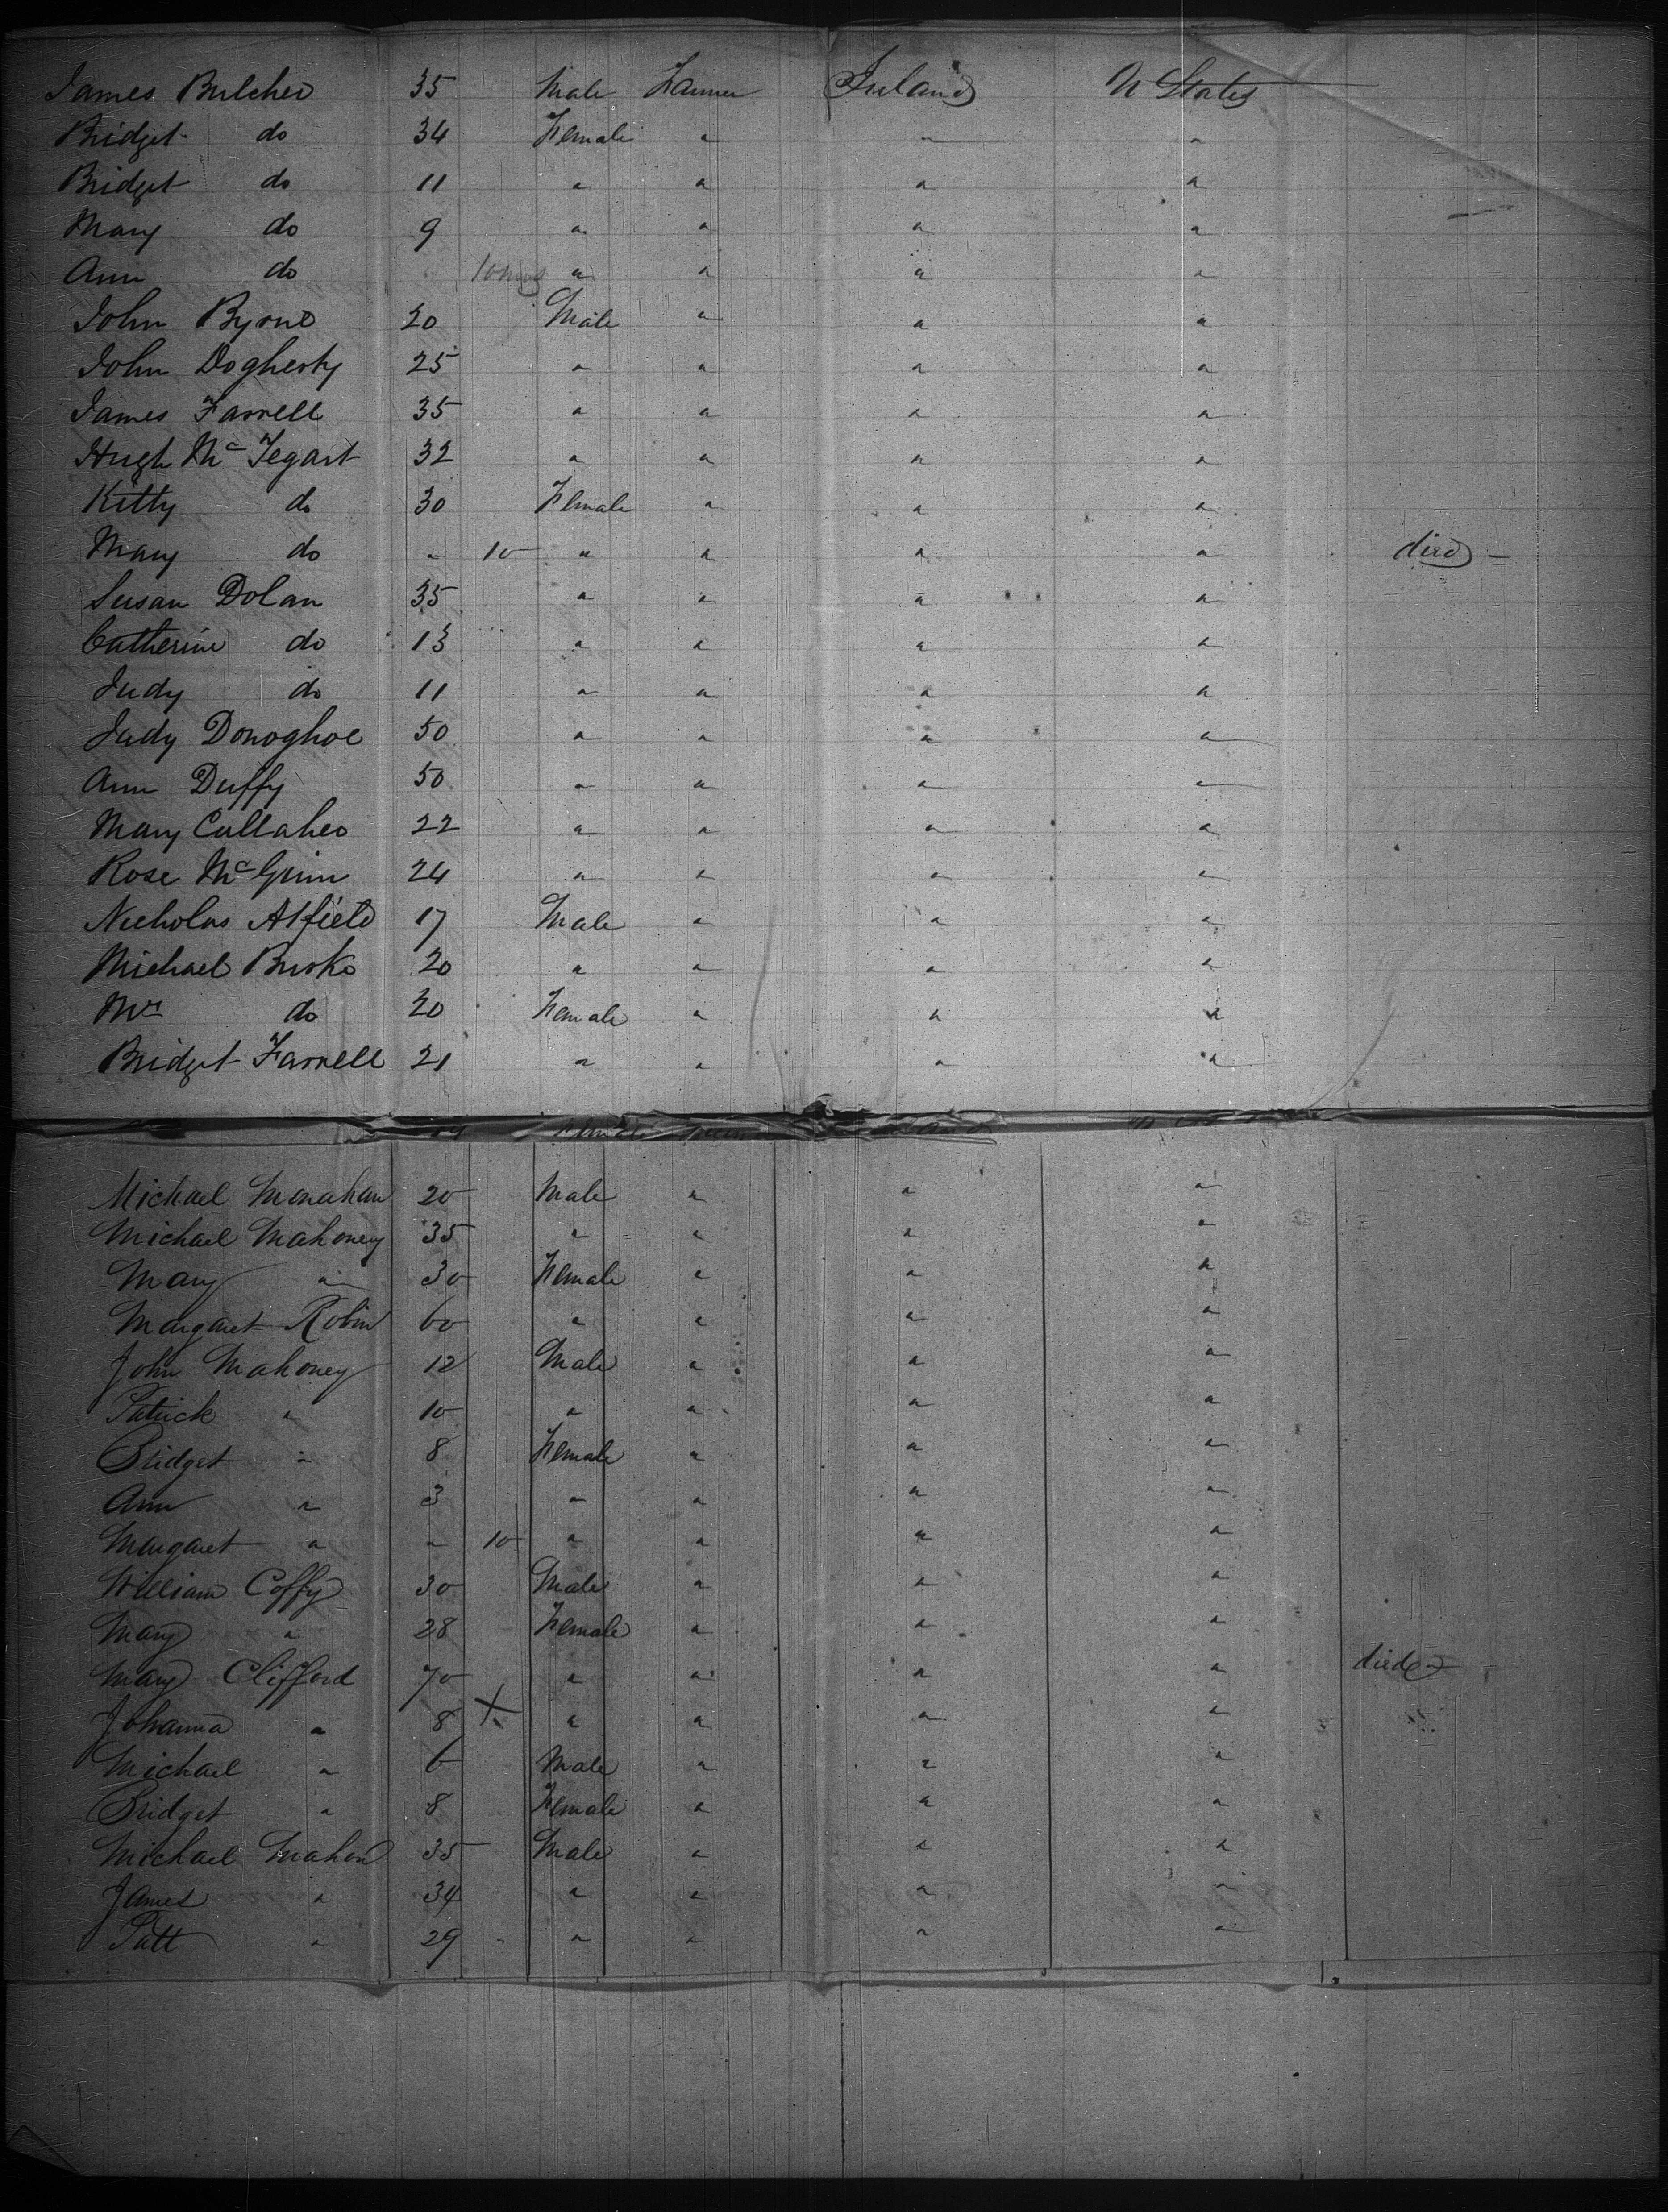 James Bulcher 35 Male Farmer Ireland U States
Bridget do 34 Female " " "
Bridget do 11 " " " "
Mary do 9 " " " "
Ann do 10 mos " " " "
John Byrne 20 Male " " "
John Dogherty 25 " " " "
James Farrell 35 " " " "
Hugh Mc Tegart 32 " " " "
Kitty do 30 Female " " "
Mary do " 10 " " " " died —
Susan Dolan 35 " " " "
Catherine do 13 " " " "
Judy do 11 " " " "
Judy Donoghoe 50 " " " "
Ann Duffy 50 " " " "
Mary 22 " " " "
Rose Mc Ginn 24 " " " "
Nicholas Atfield 17 Male " " "
Michael Burke 20 " " " "
Mrs do 20 Female " " "
Bridget Farrell 21 " " " "
Michael Monahan 20 Male " " "
Michael Mahoney 35 " " " "
Mary " 30 Female " " "
Margaret Robin 60 " " " "
John Mahoney 12 Male " " "
Patrick " 10 " " " "
Bridget " 8 Female " " "
Ann " 3 " " " "
Margaret " " 10 " " " "
William Coffy 30 Male " " "
Mary " 28 Female " " "
Mary Clifford 70 " " " " died
Johanna " 8 X " " " "
Michael " 6 Male " " "
Bridget " 8 Female " " "
Michael Mahon 35 Male " " "
James " 34 " " " "
Patt " 29 " " " "